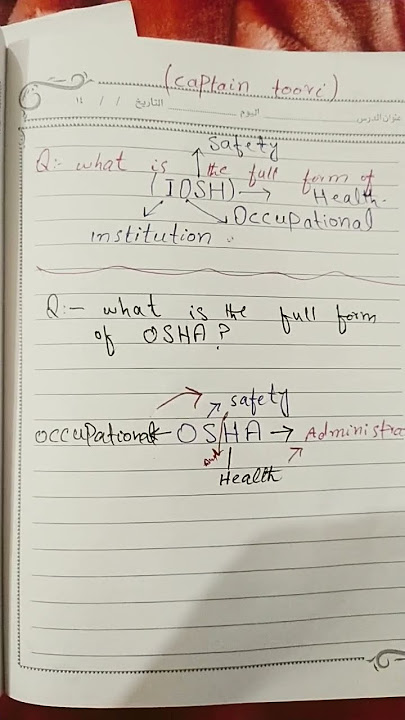 (captain toori)
عنوان الدرس اليوم التاريخ / / ١٤
Safety
Q:- what is the full form of
(IOSH) → Health.
institution. Occupational
Q:- what is the full form
of OSHA?
safety
Occupational ← OS/HA → Administra
and
Health